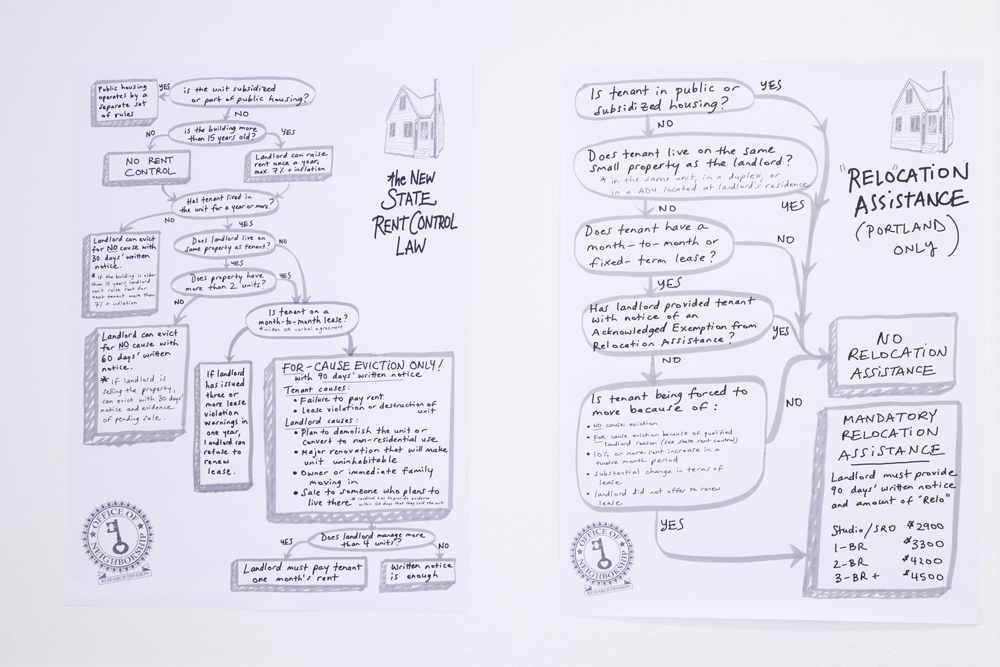 Public housing
operates by a
separate set
of rules
YES
is the unit subsidized
or part of public housing?
NO
is the building more
than 15 years old?
NO
YES
NO RENT
CONTROL
Landlord can raise
rent once a year,
max. 7% + inflation
the NEW
STATE
RENT CONTROL
LAW
Has tenant lived in
the unit for a year or more?
NO
YES
Landlord can evict
for NO cause with
30 days' written
notice.
* If the building is older
than 15 years, landlord
can't raise rent for
next tenant more than
7% + inflation
Does landlord live on
same property as tenant?
NO
YES
Does property have
more than 2 units?
YES
NO
Landlord can evict
for NO cause with
60 days' written
notice.
* If landlord is
selling the property,
can evict with 30 days'
notice and evidence
of pending sale.
Is tenant on a
month-to-month lease?
*written or verbal agreement
If landlord
has issued
three or
more lease
violation
warnings in
one year,
landlord can
refuse to
renew
lease.
FOR-CAUSE EVICTION ONLY!
with 90 days' written notice
Tenant causes:
• Failure to pay rent
• Lease violation or destruction of
unit
Landlord causes:
• Plan to demolish the unit or
convert to non-residential use
• Major renovation that will make
unit uninhabitable
• Owner or immediate family
moving in
• Sale to someone who plans to
live there
Does landlord manage more
than 4 units?
YES
NO
Landlord must pay tenant
one month's rent
Written notice
is enough
OFFICE OF
NEIGHBORSHIP
RESEARCH DIVISION
Is tenant in public or
subsidized housing?
YES
NO
Does tenant live on the same
small property as the landlord?
* in the same unit, in a duplex, or
in a ADU located at landlord's residence
YES
NO
"RELO"CATION
ASSISTANCE
(PORTLAND
ONLY)
Does tenant have a
month-to-month or
fixed-term lease?
NO
YES
Has landlord provided tenant
with notice of an
Acknowledged Exemption from
Relocation Assistance?
YES
NO
NO
RELOCATION
ASSISTANCE
Is tenant being forced to
move because of:
• NO cause eviction
• For cause eviction because of qualified
landlord reason (see state rent control)
• 10% or more rent increase in a
twelve month period
• Substantial change in terms of
lease
• landlord did not offer to renew
lease
NO
YES
MANDATORY
RELOCATION
ASSISTANCE
Landlord must provide
90 days' written notice
and amount of "Relo"
Studio/SRO $2900
1-BR $3300
2-BR $4200
3-BR + $4500
OFFICE OF
NEIGHBORSHIP
RESEARCH DIVISION